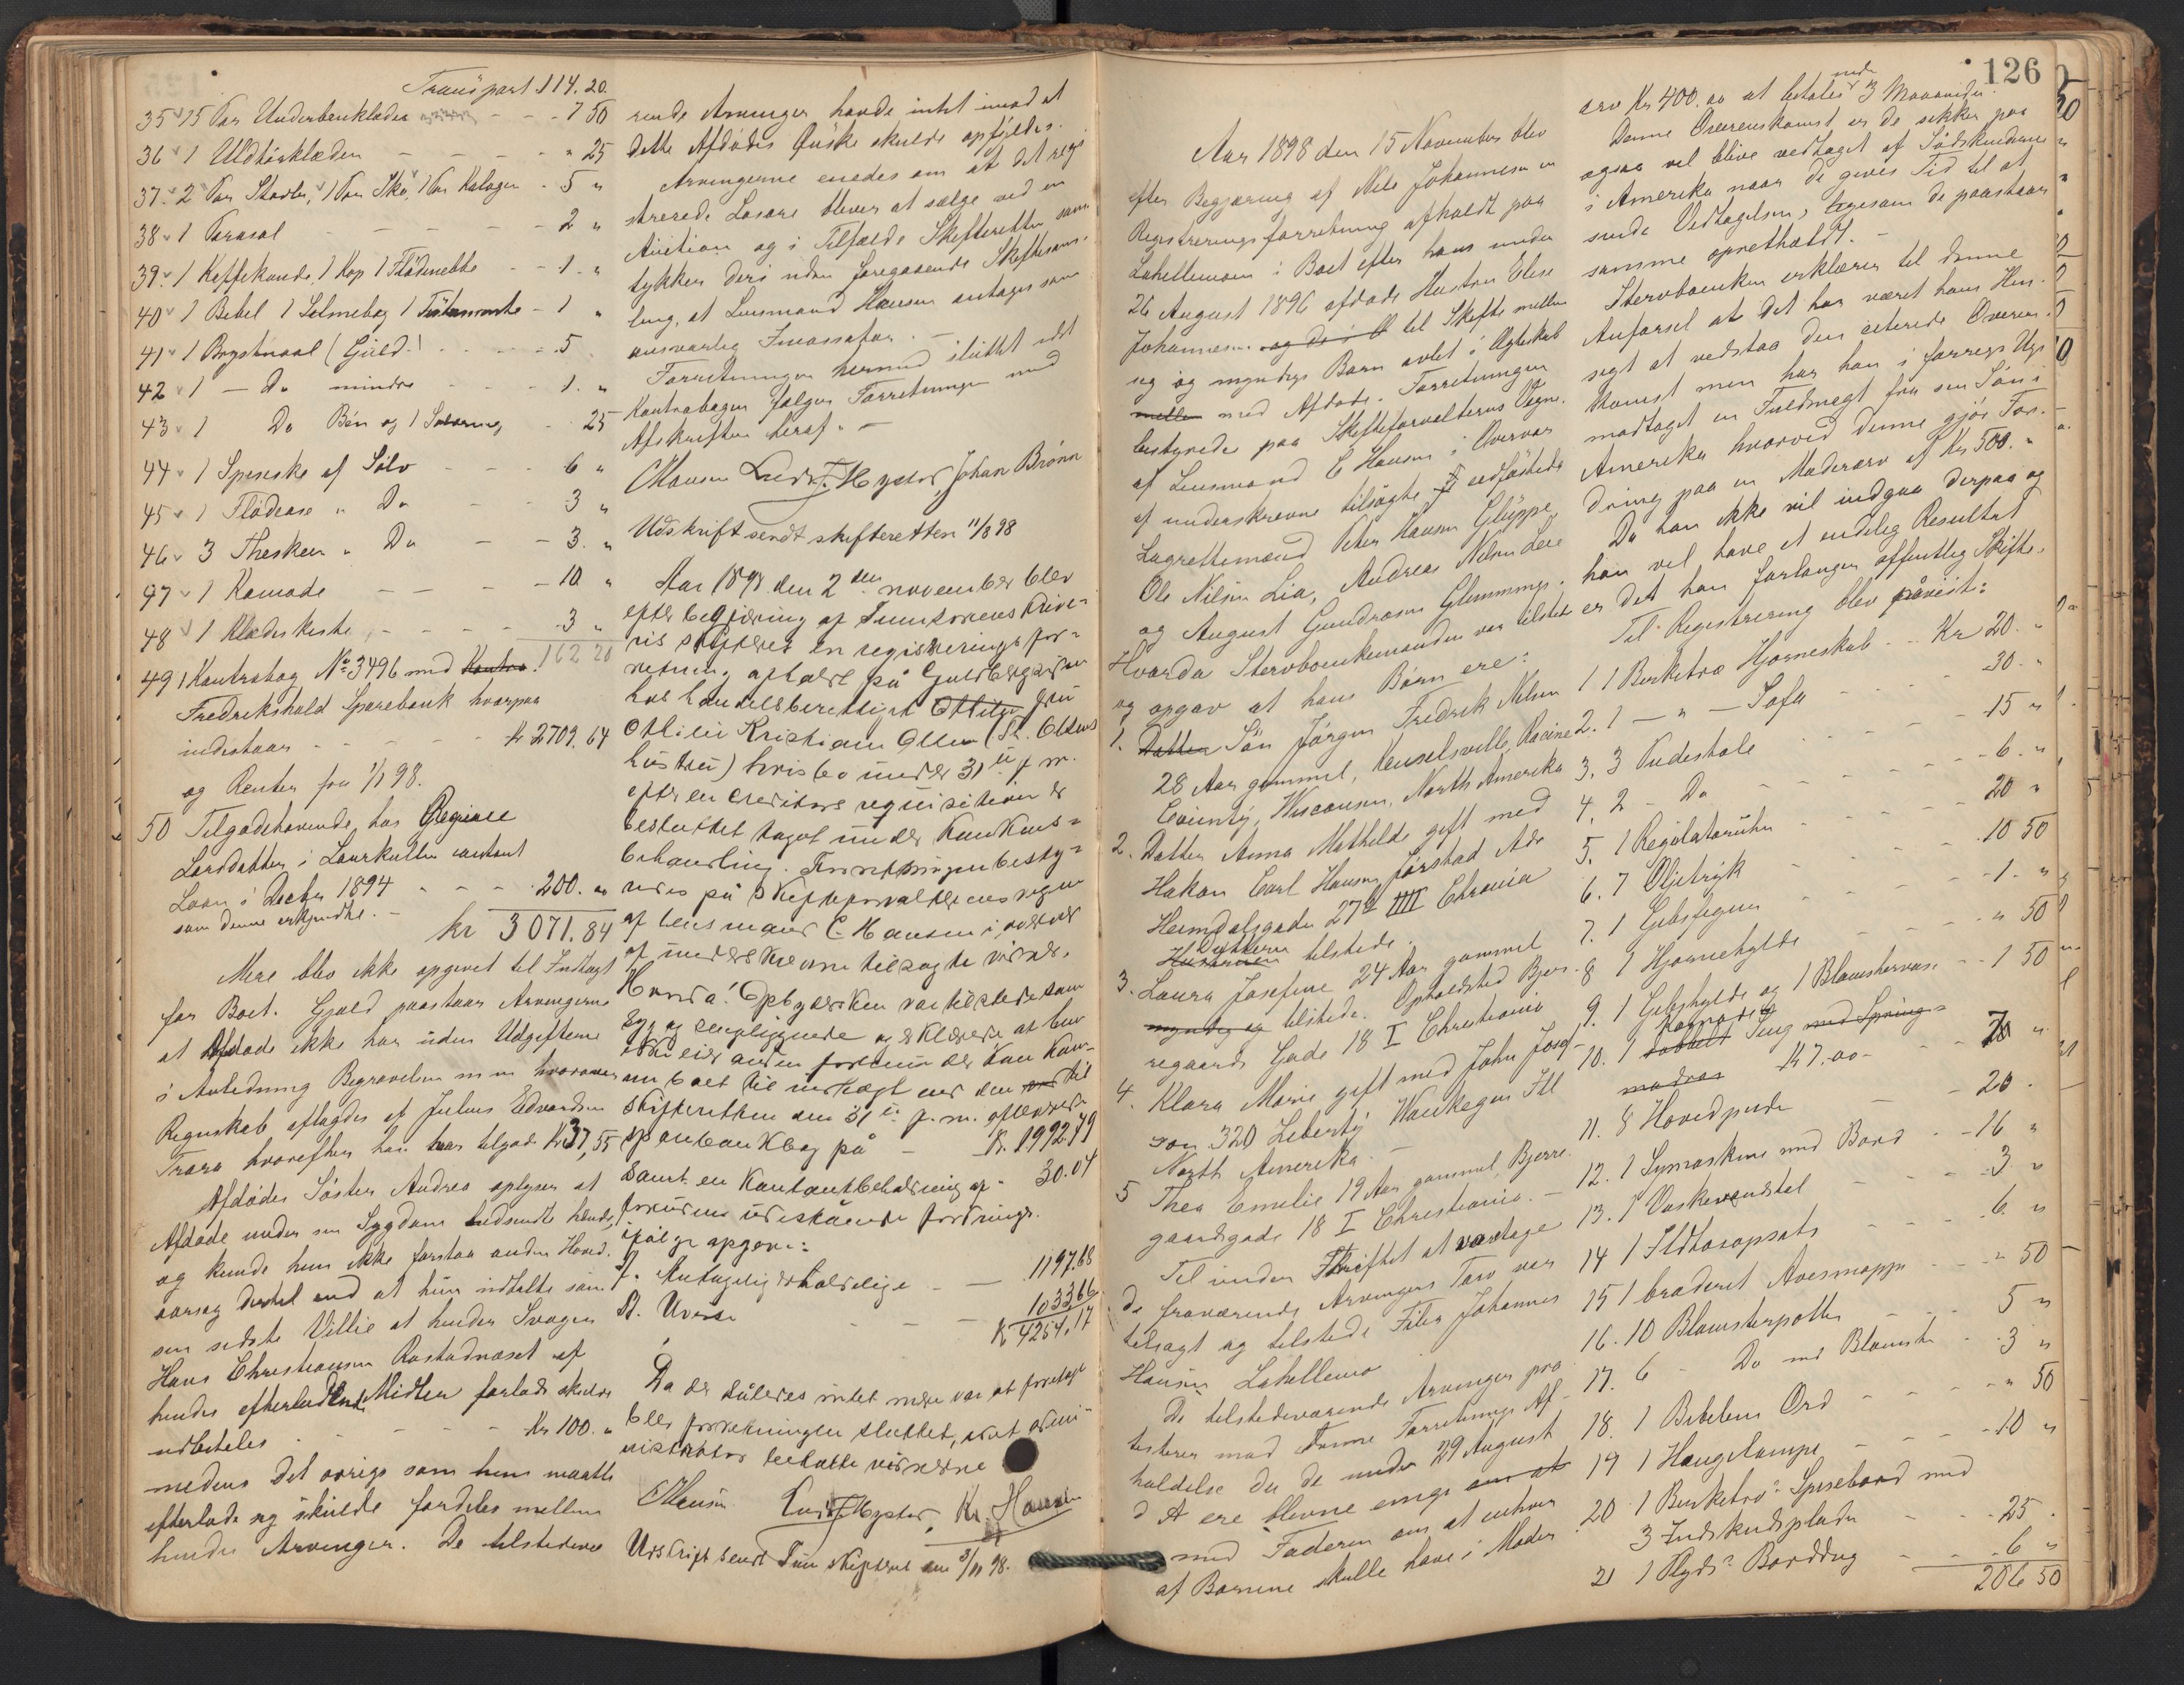 Transport 114. 20.
35 15 Par Underbenklæder - - 7 50
36 1 Uldtørklæde - - " 25
37. 2 Par Støvler, 1 Par Sko, 1 Par Kaloger - 5 "
38 1 Parasol - - 2 "
39. 1 Kaffekande, 1 Kop 1 Flødemelke - - 1. "
40 1 Bibel 1 Salmebog 1 Testamente - 1 "
41 1 Brystnaal (Guld.) - - 5
42 1 — Do mindre - - 1. "
43 1 Do Ben og 1 - 25
44 1 Speseske af Sølv - - 6 "
45 1 Flødeøse " Do - - 3 "
46 3 Theskeer " Do - - 3. "
47 1 Komode - - 10 "
48 1 Klædeskiste - - 3 "
162 20
49 1 Kontrabog No 3496 med Kontra
Fredrikshald Sparebank hvorpaa
indestaar - - kr 2709. 64
og Renter fra 1/1 98.
50 Tilgodehavende hos Regine
Larsdatter i Laurkullen contant
Laan i Decbr 1894 - - 200. "
som denne erkjendte. -
kr 3071. 84
Mere blev ikke opgivet til Indtægt
for Boet. Gjæld paastaar Arvingerne
at Afdøde ikke har uden Udgifterne
i Anledning Begravelsen m m hvorover
Regnskab aflagdes af Julius Edvardsen
Trara hvorefter han har tilgode Kr 37, 55
Afdødes Søster Andrea oplyser at
Afdøde under sin Sygdom hedsendte hende,
og kunde hun ikke forstaa anden Hoved-
aarsag dertil end at hun udtalte som
sin sidste Villie at hendes Svoger
Hans Christiansen Rastadnæset af
hendes efterladende Midler forlods skulde
udbetales - - Kr 100. "
medens det øvrige som hun maatte
efterlade sig skulde fordeles mellem
hendes Arvinger. De tilstedevæ
rende Arvinger havde intet imod at
dette Afdødes Ønske skulde opfyldes.
Arvingerne enedes om at det regi
strerede Løsøre bliver at sælge ved en
Auktion og i Tilfælde Skifteretten sam
tykker deri uden foregaaende Skiftesam-
ling, at Lensmand Hansen antages som
ansvarlig Incassator. -
Forretningen hermed sluttet idet
Kontrabogen følger Forretningen med
Afskriften heraf. -
CHansen Ludv. F. Hyster, Johan Brønn
Udskrift sendt skifteretten 11/8 98
Aar 1898 den 2den november blev
efter begjæring af Tunesorenskrive-
ris skifteret en registreringsfor-
retning afholdt på Guldbergs
hos handelsberettiget Ottilie fru
Ottilie Kristiane Olsen (Th. Olsens
hustru) hvis bo under 31te f. m.
efter en creditors requisition er
besluttet taget under Konkurs-
behandling. Forretningen besty-
redes på Skifteforvalterens vegne
af lensmand C Hansen i overvær
af underskrevne tilsagte vidner.
Hvorda! Opbyderken var tilstede som
syg og sengliggende og erklærede at hun
ikke eier anden formue der kan kom-
me boet til indtægt end den ved til
Skifteretten den 31te f. m. afleverede
sparebankbog på - Kr. 1992. 79
samt en Kontantbeholdning af - 30. 04
foruden udestående fordringer.
ifølge opgave:
f. Antagelig erholdelige - 1197. 68
Df. Uvisse - - 1033 66
Kr 4254, 17
Da der således intet mere var at foretage
blev forretningen sluttet, idet admi-
nistrator betalte vidnerne
CHansen Ludv. F. Hyster, Kr. Hansen
Udskrift sendt Tune Skifteret den 3/11 98.
126
Aar 1898 den 15 November blev
efter Begjæring af Nils Johannesen en
Registreringsforretning afholdt paa
Lahellemoen i Boet efter hans under
26 August 1896 afdøde Hustru Elise
Johannesen og de i B til Skifte mellem
sig og myndige Børn avlet i Ægteskab
mellem med Afdøde. Forretningen
bestyredes paa Skifteforvalterens Vegne
af Lensmand C Hansen i Overvær
af underskrevne tilsagte edfæstede
Lagrettemænd Peter Hansen Gluppe,
Ole Nilsen Lia, Andreas Nilsen Lere
og August Gundrosen Glemminge.
Hvorda Stervboenkemanden var tilstede
og opgav at hans Børn ere:
1. Datter Søn Jørgen Fredrik Nilsen
28 Aar gammel, Keuselsville, Racine
County, Wisconsin, North Amerika
2. Datter Anna Mathilde gift med
Hakon Carl Hansen Jørstad Adr
Heimdalsgade 27b IIII Chrania
Husbonden Datteren tilstede.
3. Laura Josefine 24 Aar gammel
myndig og tilstede. Opholdsted Bjer-
regaards Gade 18 I Christiania
4. Klara Marie gift med John Josef-
son 320 Liberty Waukegan Ill
North Amerika. -
5 Thea Emelie 19 Aar gammel, Bjerre-
gaardsgade 18 I Christiania. -
Til under Skiftet at varetage
de fraværende Arvingers Tarv var
tilsagt og tilstede Filip Johannes
Hansen Lahellemo
De tilstedeværende Arvinger pro-
testerer mod denne Forretnings Af-
holdelse da de under 29 August
d A ere blevne enige om at
med Faderen om at enhver
af Børnene skulle have i Mødre
arv Kr 400. oo at betales inde 3 Maaneder.
Denne Overenskomst er de sikker paa
ogsaa vil blive vedtaget af Sødskende
i Amerika naar de gives Tid til at
sende Vedtagelsen, ligesom de paastaar
samme opretholdt. -
Stervboenken erklærer til denne
Anførsel at det har været hans Hen-
sigt at vedstaa den citerede Overens-
komst men har han i forrige Uge
modtaget en Fuldmagt fra sin Søn i
Amerika hvorved denne gjør For-
dring paa en Mødrearv af Kr 500. "
Da han ikke vil indgaa derpaa og
han vil have et endelig Resultat
er det han forlanger offentlig Skifte.
Til Registrering blev påvist:
1 1 Birketræ Hjørneskab - - Kr 20. "
2. 1 — " — Sofa - - 30. "
3. 3 Pudestole - - 15 "
4. 2 - Do - - 6. "
5. 1 Regulatoruhr - - 20 "
6. 7 Oljetryk - - 10 50
7. 1 Gibsfigur - - 1. "
8 1 Hjørnehylde - - " 50
9. 1 Gibshylde og 1 Blomstervase - - 1 50
10. 1 dobbelt Seng med Spring-
madras Kr 7. oo - - 7 "
11. 8 Hovedpuder - - 20.
12. 1 Symaskine med Bord - - 16 "
13. 1 Vaskevandstel - - 3 "
14 1 Ildtøiopsats - - 6. "
15 1 broderet Avismappe - - " 50
16. 10 Blomsterpotter - - 5 "
17. 6 - Do med Blomster - - 3 "
18. 1 Bibelens Ord - - " 50
19 1 Hængelampe - - 10 "
20 1 Birketræs Spisebord med
3 Indskudsplader - - 25.
21 1 Plyds Borddug - - 6 "
206 50